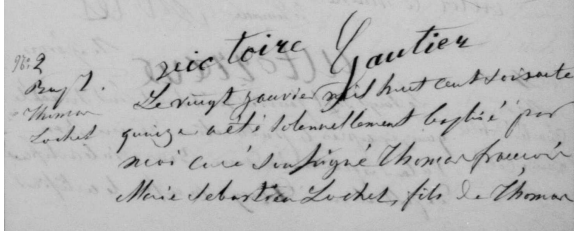 victoire Gautier
No. 2
Bapt.
Thomas
Lochet
Le vingt janvier mil huit cent soixante
quinze a été solennellement baptisé par
moi curé soussigné Thomas francois
Marie Sebastien Lochet, fils de Thomas